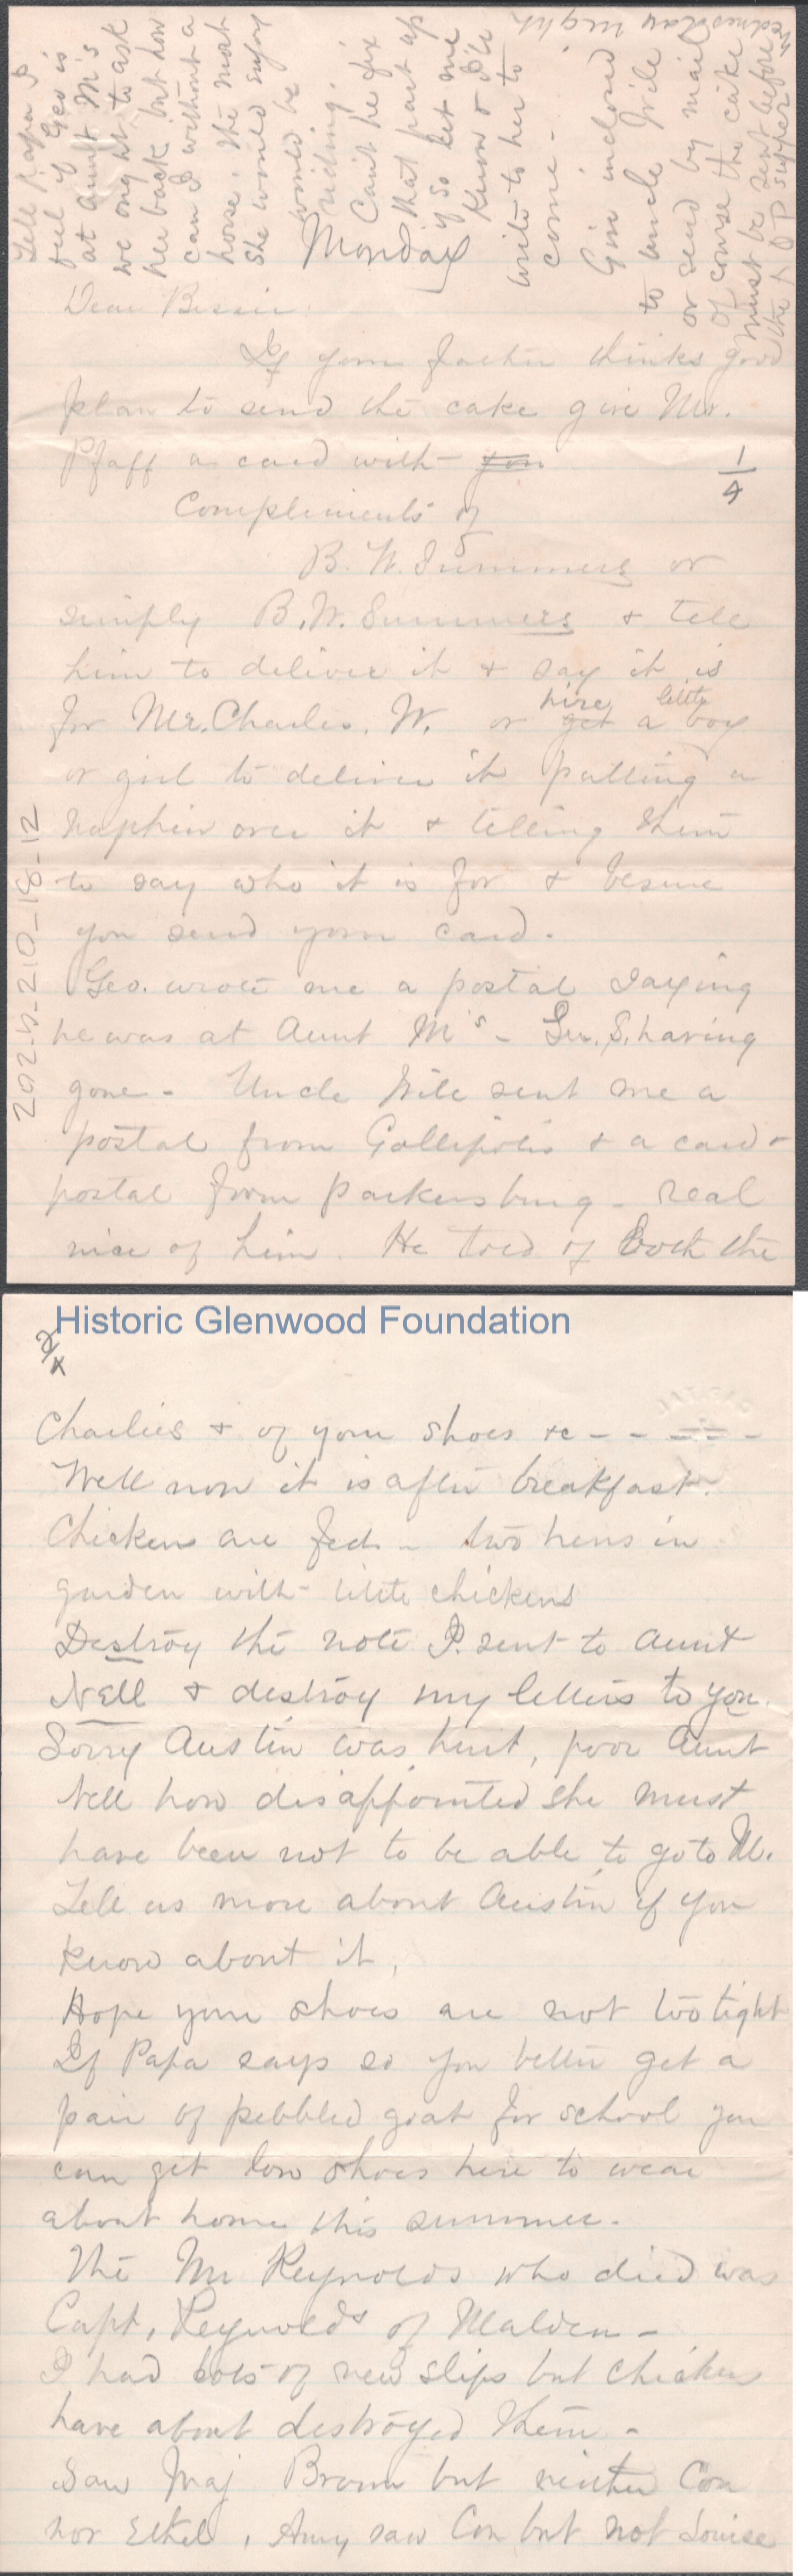 Tell Papa I
feel if Geo is
at Aunt M's
we ought to ask
her back but how
can I without a
horse. The most
she would enjoy
would be
riding.
Can't he fix
that part up
if so let me
know & I'll
write to her to
come -
Give inclosed
to Uncle Wile
or send by mail
Of course the cake
must be sent before
the supper
Wednesday night
Monday
Dear Bessie:
If your father thinks good
plan to send the cake give Mr.
Pfaff a card with you
1/4
Compliments of
B. W. Summers or
simply B. W. Summers & tell
him to deliver it & say it is
for Mr. Charles. W. or get a boy
hire little
or girl to deliver it putting a
napkin over it & telling them
to say who it is for & besure
you send your card.
Geo. wrote me a postal saying
he was at Aunt M's - Gen. S. having
gone - Uncle Wile sent me a
postal from Gallipolis & a card -
postal from Parkersburg - real
nice of him. He told of both the
202.5-210-18-12
Historic Glenwood Foundation
2/4
Charlies & of your shoes &c - - - - -
Well now it is after breakfast.
Chickens are fed - two hens in
garden with little chickens
Destroy the note I sent to Aunt
Nell & destroy my letters to you.
Sorry Austin was hurt, poor Aunt
Nell how disappointed she must
have been not to be able to go to M.
Tell us more about Austin if you
know about it,
Hope your shoes are not too tight
If Papa says so you better get a
pair of pebbled goat for school you
can get low shoes here to wear
about home this summer.
The Mr Reynolds who died was
Capt. Reynolds of Malden -
I had lots of new slips but chickens
have about destroyed them -
Saw Maj Brown but neither Con
nor Ethel, Amy saw Con but not Louise